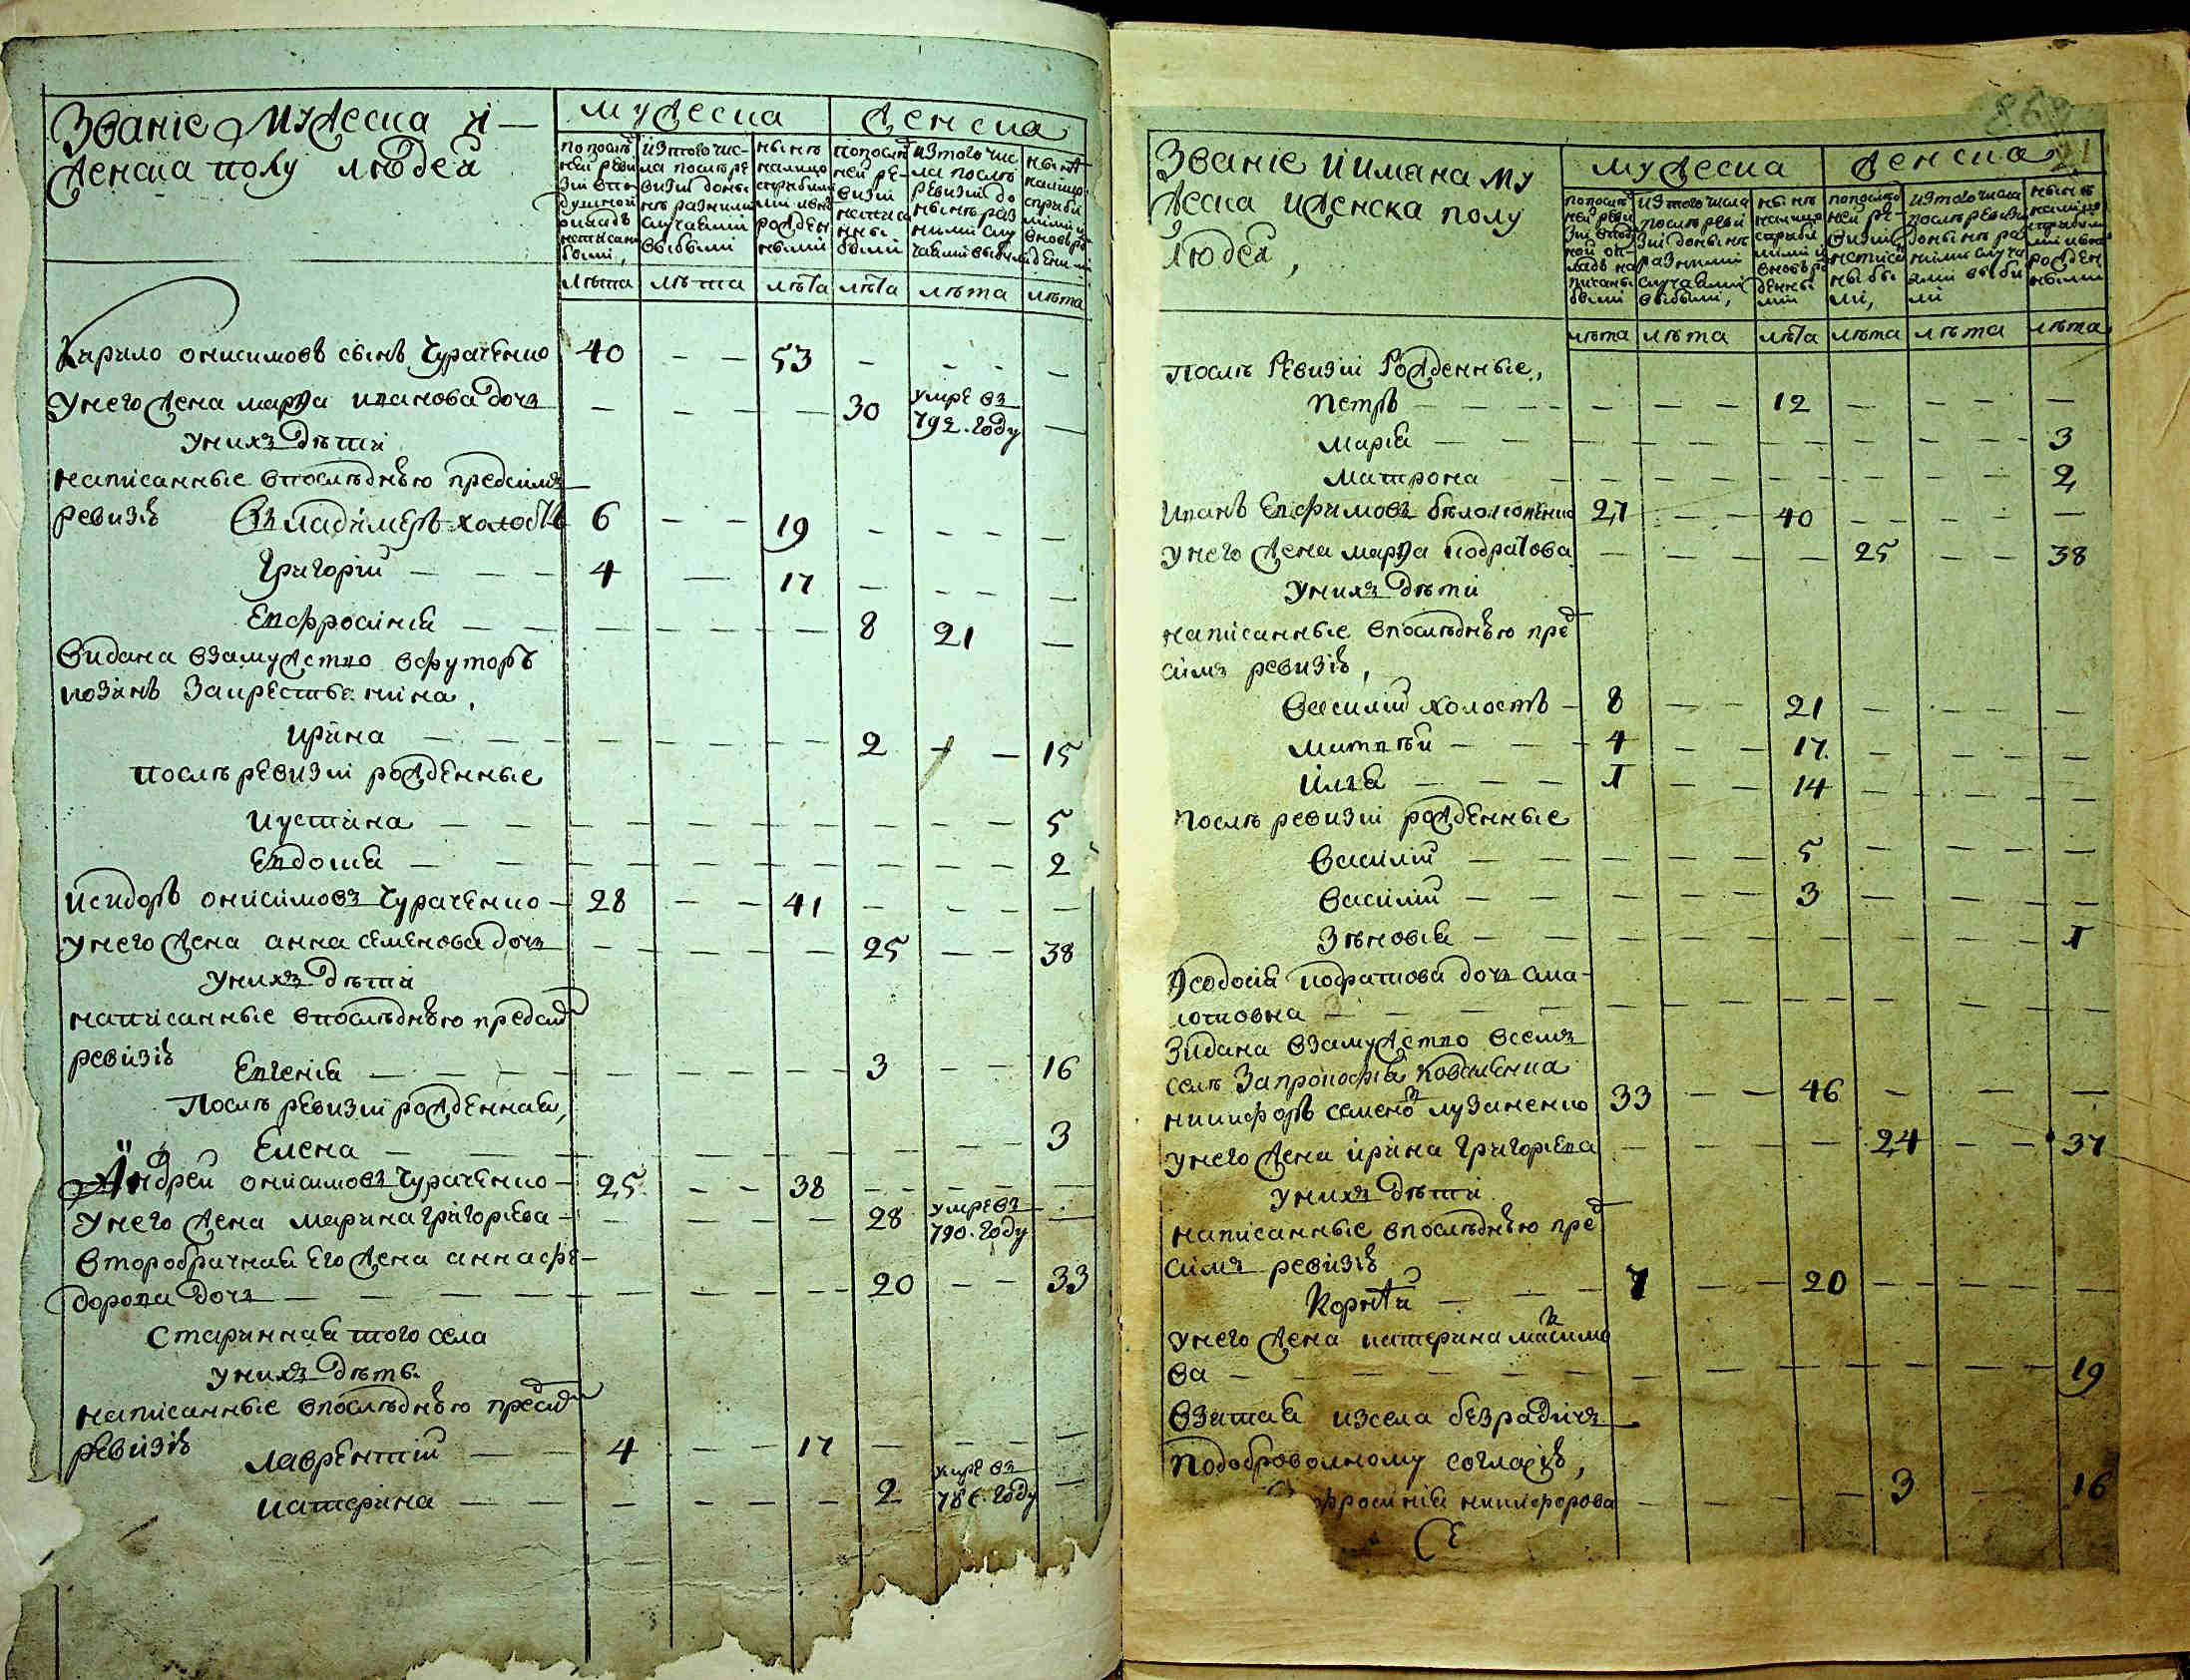 Званіе Мужеска и
женска полу людей
мужеска женска
по послѣдней ревизіи в подушной окладъ написаны были,
из того числа послѣ ревизіи до нынѣ разними случаями выбыли
нынѣ налицо с прибилими и вновь рожденными
по последней ревизіи написанны были
из того числа послѣ ревизіи до нынѣ разними случаями выбыли
нынѣ налицо с прибилими и вновь рожденими
лѣта лѣта лѣта лѣта лѣта лѣта
Кирило онисимовъ сынъ Чураченко 40 — — 53 — — — —
У него жена марѳа иванова дочъ — — — — 30 умре въ 792. году —
У нихъ дѣти
написанные в послѣднюю предсимъ
ревизію Владимеръ холостъ 6 — — 19 — — — —
Григорій — — — 4 — 17 — — — —
Евфросинія — — — — — — 8 21 —
Видана взамужство в футоръ
козинъ за крестьянина,
Ирина — — — — — — 2 — — 15
Послѣ ревизіи рожденные
Иустина — — — — — — — — 5
Евдокия — — — — — — — — 2
Исидоръ онисимовъ Чураченко — 28 — — 41 — — — —
У него жена анна семенова дочъ — — — — 25 — — 38
У нихъ дѣти
написанные в послѣднюю предсимъ
ревизію Евгенія — — — — — — — 3 — — 16
Послѣ ревизіи рожденная,
Елена — — — — — — — — 3
Андрей онисимовъ Чураченко — 25 — — 38 — — — —
У него жена марина григорьева — — — — — 28 умре въ 790. году —
Второбрачная его жена анна фе—
дорова дочъ — — — — — — — — 20 — — 33
Старинная того села
У нихъ дѣти.
написанные в послѣднюю предсимъ
ревизію Лаврентій — — 4 — — 17 — — — —
катерина — — — — — — 2 умре въ 786. году —
Званіе й имана му
жеска и женска полу
людей,
мужеска женска
по послѣдней ревизіи в подушной окладъ написаны были
из того числа послѣ ревизіи до нынѣ разними случаями выбыли,
нынѣ налицо с прибилими и вновь рожденными
по последней ревизіи написаны были,
из того числа послѣ ревизіи до нынѣ разними случаями выбили
нынѣ налицо с прибилими и вновь рожденными
лѣта лѣта лѣта лѣта лѣта лѣта
Послѣ Ревизіи Рожденные,
Петръ — — — — — — — 12 — — — — —
Марія — — — — — — — — — 3
Матрона — — — — — — — — — 2
Иванъ Евфимовъ бѣлоконенко 27 — — 40 — — — — —
У него жена марѳа кодратова — — — — 25 — — 38
У нихъ дѣти
написанные в послѣднюю пред
симъ ревизію,
Василій холостъ — 8 — — 21 — — — —
Матвѣй — — — 4 — — 17 — — — —
Илья — — — 1 — — 14 — — — —
Послѣ ревизіи рожденные
Василій — — — — — 5 — — — —
Василій — — — — — 3 — — — —
Зѣновія — — — — — — — — 1
Ѳеодосія
Видана взамужство в семъ
селѣ За прокофія Коваленка
никифоръ семеновъ лузаненко 33 — — 46 — — —
У него жена ірина Григорьева — — — — 24 — — 37
У нихъ дѣти
написанные в послѣднюю пред
симъ ревизію
Корнѣй — — — 7 — — 20 — — — —
У него жена катерина максимо
ва — — — — — — — — — 19
Взятая из села безрадичъ
По добровольному согласію,
никифорова — — — — 3 — 16